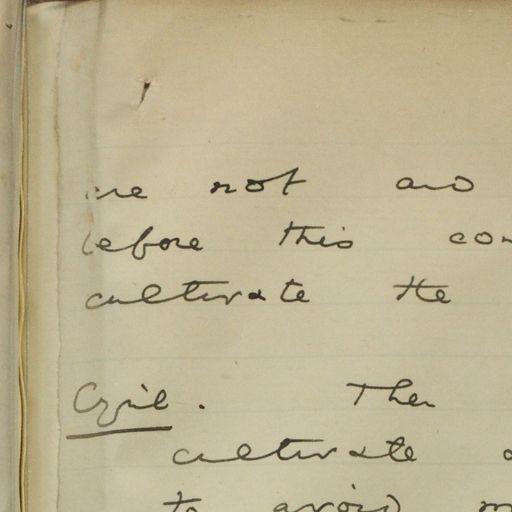 are not and
before this con
cultivate the
Cyril. Then
cultivate a
to avoid m